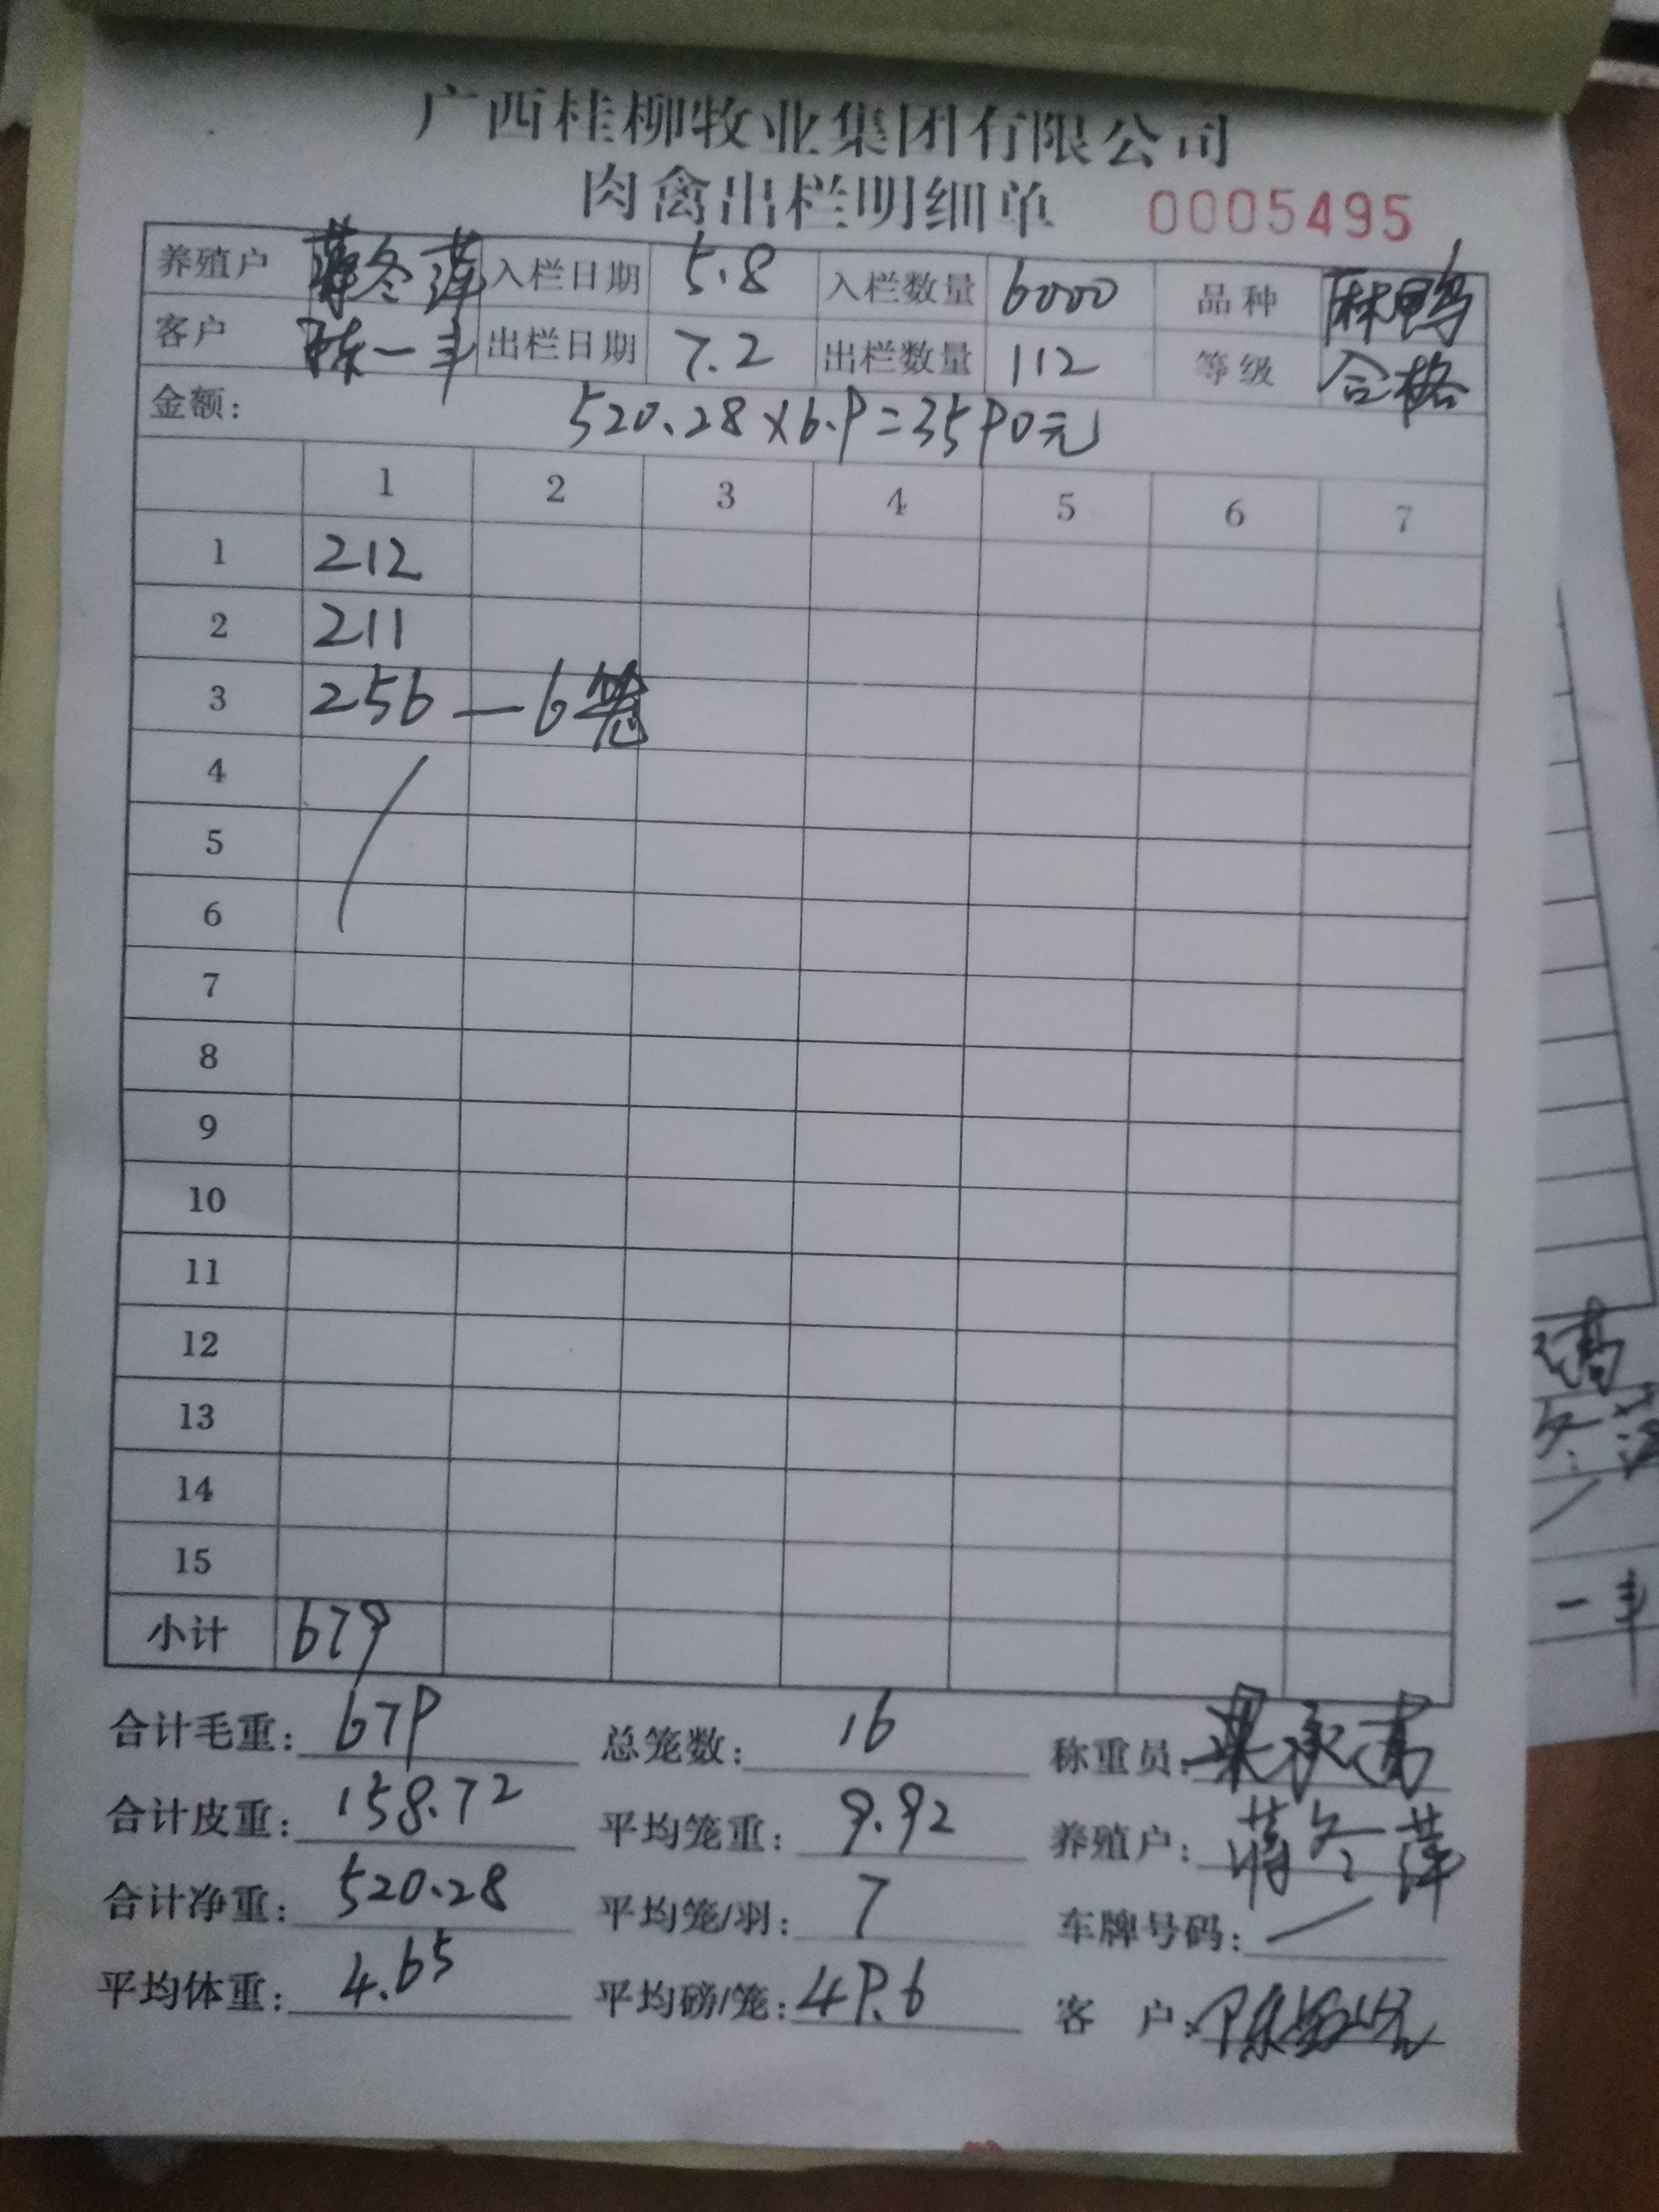 广西桂柳牧业集团有限公司
肉禽出栏明细单 0005495
养殖户 蒋冬萍 入栏日期 5.8 入栏数量 6000 品种 麻鸭
客户 陈一丰 出栏日期 7.2 出栏数量 112 等级 合格
金额: 520.28×6.9=3590元
1 2 3 4 5 6 7
1 212
2 211
3 256 — 6笼
4
5
6
7
8
9
10
11
12
13
14
15
小计 679
合计毛重: 679 总笼数: 16 称重员:
合计皮重: 158.72 平均笼重: 9.92 养殖户: 蒋冬萍
合计净重: 520.28 平均笼/羽: 7 车牌号码: /
平均体重: 4.65 平均磅/笼: 49.6 客 户:
一丰